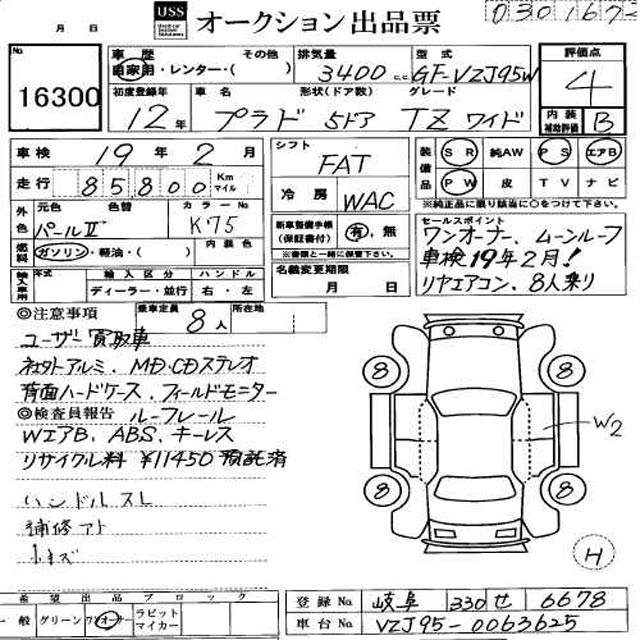 USS オークション出品票
030167-
月 日
No. 16300
車歴 自家用・レンター・( ) その他
排気量 3400 c.c.
型式 GF-VZJ95W
評価点 4
初度登録年 12年
車名 プラド
形状(ドア数) 5ドア
グレード TZ ワイド
内装補助評価 B
車検 19年 2月
シフト FAT
装備品 SR 純AW PS エアB
走行 85800 Km マイル
PW 皮 TV ナビ
冷房 WAC
※純正品に限り該当に○をつけて下さい。
外色 元色 パールⅡ 色替 カラーNo. K'75
新車整備手帳(保証書付) 有・無
※書類と一緒に保管下さい。
セールスポイント
ワンオーナー、ムーンルーフ
車検19年2月!
リヤエアコン、8人乗り
燃料 ガソリン・軽油・( ) 内装色
名義変更期限 月 日
輸入車用 年式 輸入区分 ディーラー・並行 ハンドル 右・左
◎注意事項
乗車定員 8人 所在地
ユーザー買取車
社外アルミ、MD・CDステレオ
背面ハードケース、フィールドモニター
◎検査員報告 ルーフレール
WエアB、ABS、キーレス
リサイクル料 ¥11450 預託済
ハンドルスレ
補修アト
小キズ
8 8
W2
8 8
H
希望出品ブロック
一般 グリーン ワンオーナー ラビットマイカー
登録No. 岐阜 330 せ 6678
車台No. VZJ95-0063625